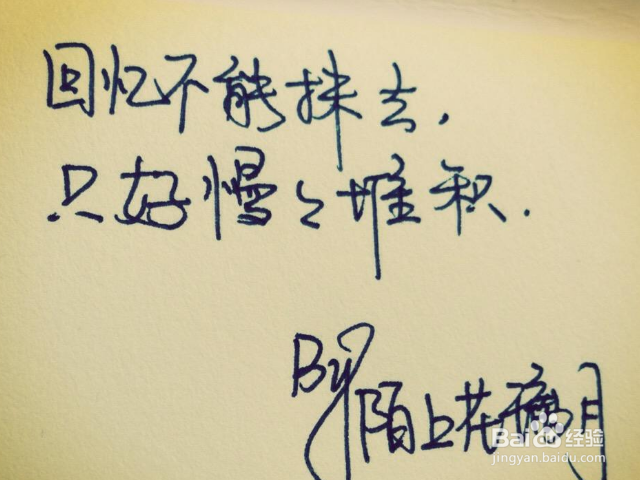 回忆不能抹去,
只好慢々堆积.
By 陌上花 月
Baidu 经验
jingyan.baidu.com